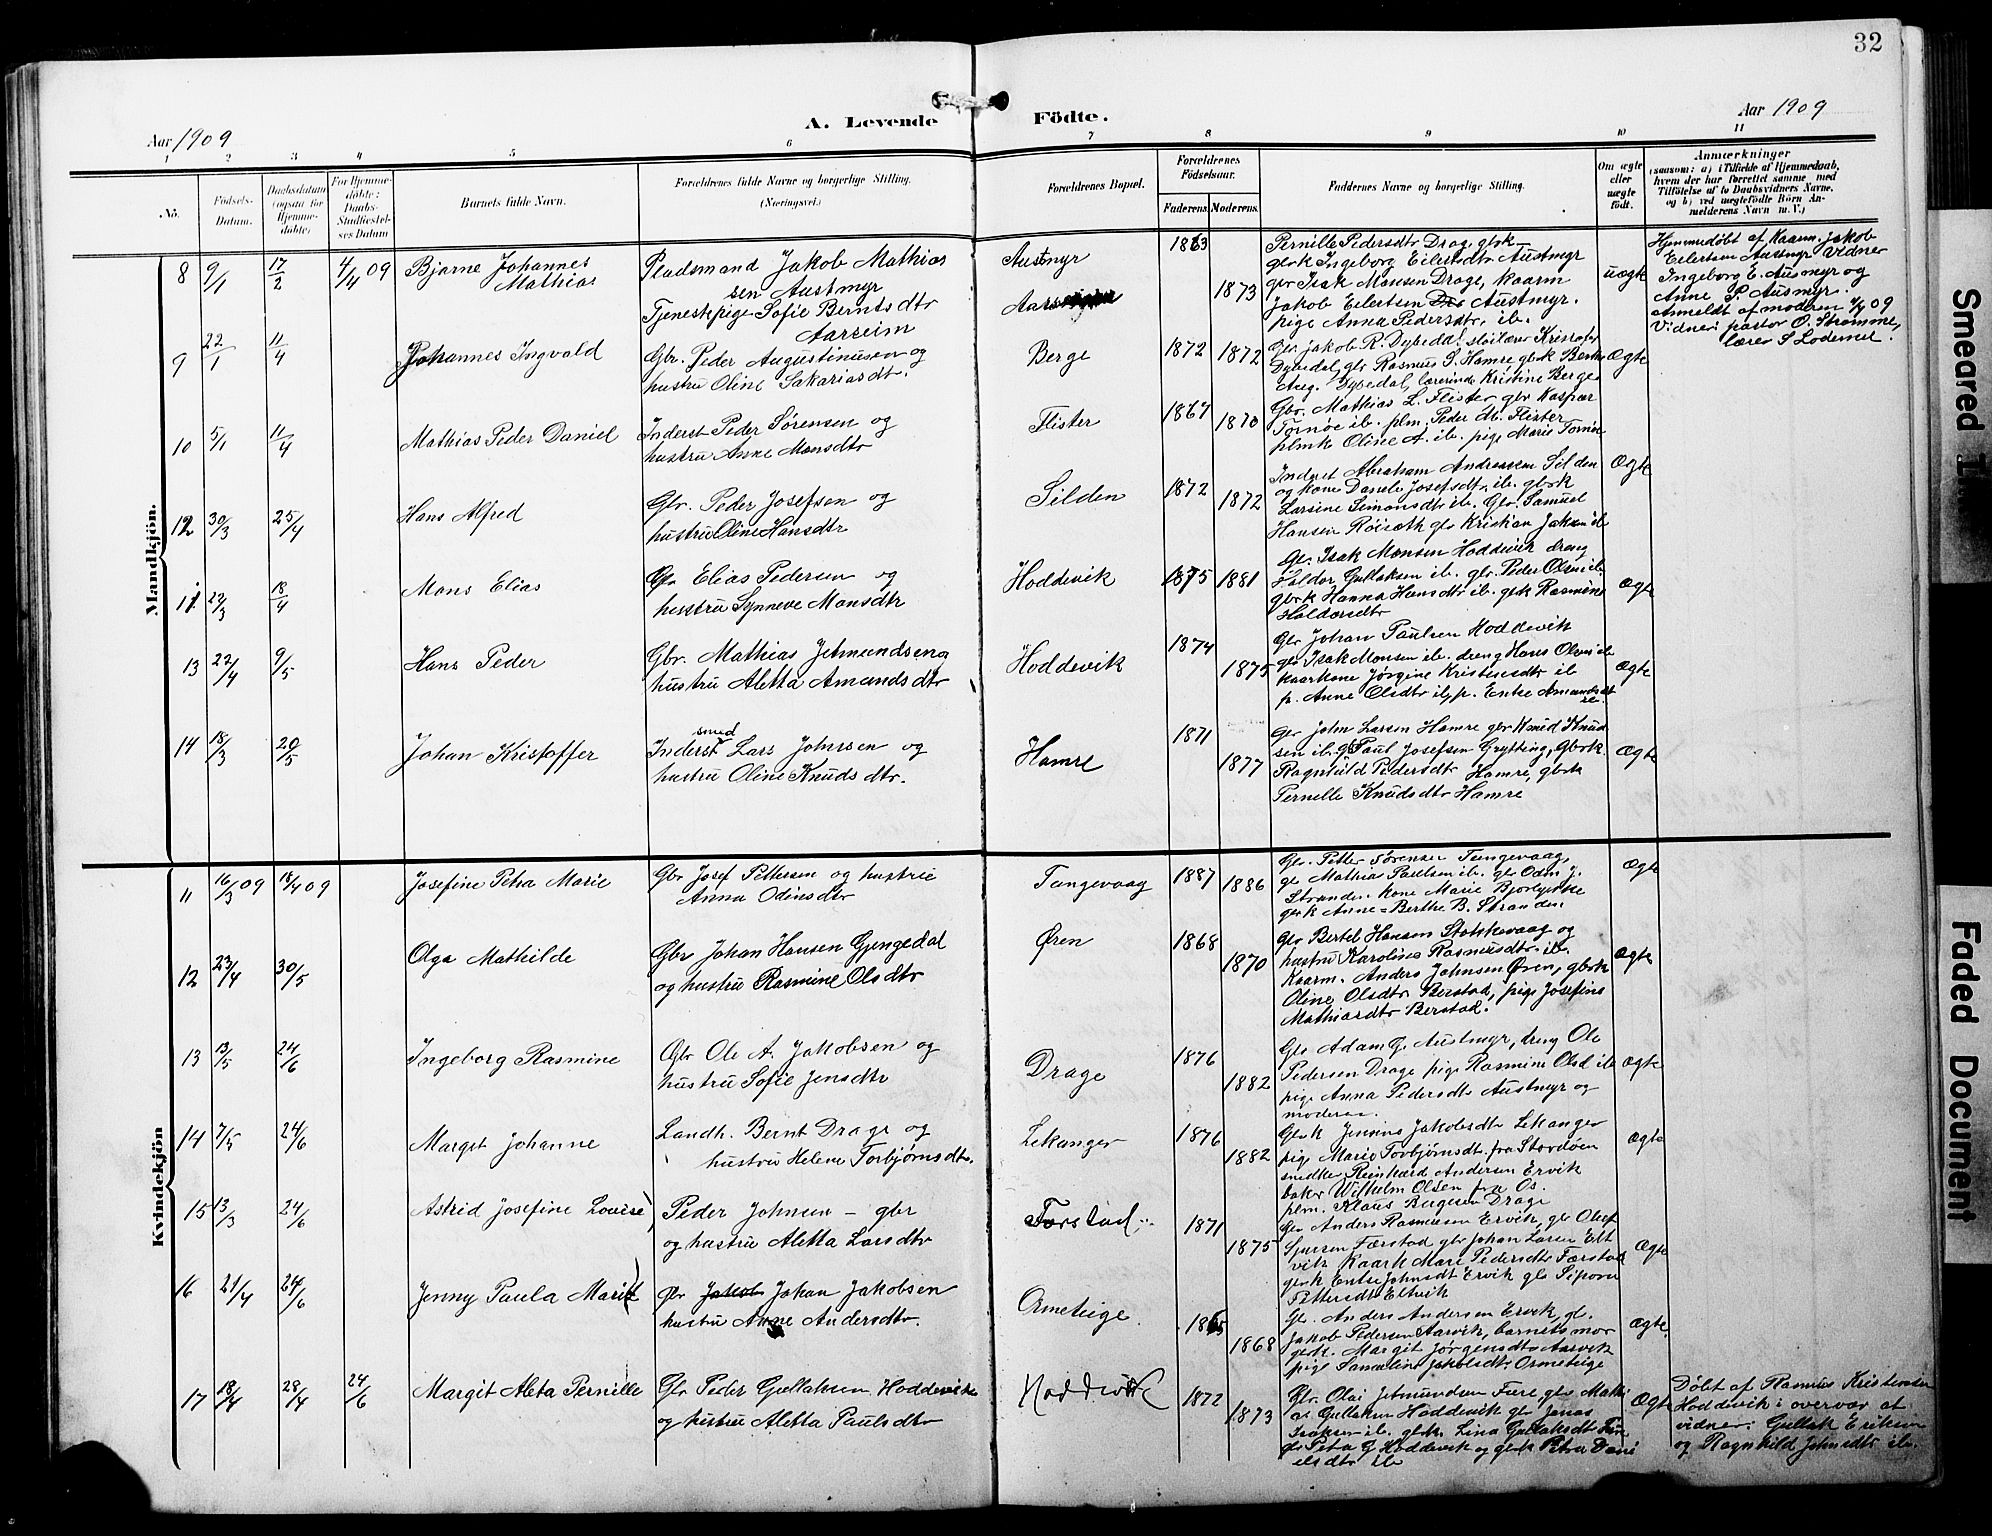 32
A. Levende Födte.
Aar 1909
Aar 1909
1 2 3 4 5 6 7 8 9 10 11
No.
Födsels-Datum.
Daabsdatum (ogsaa for Hjemmedöbte)
For Hjemmedöbte: Daabs-Stadfæstelses Datum
Barnets fulde Navn.
Forældrenes fulde Navne og borgerlige Stilling. (Næringsvei.)
Forældrenes Bopæl.
Forældrenes Födselsaar.
Faderens. Moderens.
Faddernes Navne og borgerlige Stilling.
Om ægte eller uægte födt.
Anmærkninger
(saasom: a) i Tilfælde af Hjemmedaab,
hvem der har forrettet samme med
Tilföielse af to Daabsvidners Navne,
og b) ved uægtefödte Börn Anmelderens Navn m. V.)
Mandkjön.
8 9/1 17/2 4/4 09 Bjarne Johannes Mathias
Pladsmand Jakob Mathiassen Austmyr
Tjenestpige Sofie Berntsdtr Aarseim
Austmyr
1863 1873
Pernille Pedersdtr Drage gbrk
gbrk Ingeborg Eilertsdtr Austmyr
gbr Isak Monsen Drage, kaarm
Jakob Eilertsen Austmyr.
pige Anna Pedersdtr, ib.
uægte
Hjemmedøbt af Kaarm. Jakob
Eilertsen Austmyr Vidner
Ingeborg E. Ausmyr og
Anne P. Ausmyr.
Anmeldt af moderen 09
Vidner: pastor O. Strømme,
lærer S Lodemel.
9 22/1 11/4 Johannes Ingvald
Gbr. Peder Augustinusen og
hustru Oline Sakariasdtr.
Berge
1872 1872
Gbr Jakob R. Dybedal
Dybedal, gbr Rasmus S. Hamre gbrk Berthe
Aug. Dybedal, lærerinde Kristine Berge
Ægte
10 5/1 11/4 Mathias Peder Daniel
Inderst Peder Sørensen og
hustru Anne Monsdtr
Flister
1867 1870
Gbr. Mathias L. Flister gbr Kaspar
Tornøe ib. plm. Peder M. Flister
plmk Oline A. ib. pige Marie Tornøe
Ægte
12 30/3 25/4 Hans Alfred
Gbr. Peder Josefsen og
hustru Oline Hansdtr
Silden
1872 1872
Inderst Abraham Andreassen Silden
og kone Danele Josefsdtr, ib. gbrk
Larsine Simonsdtr ib. Gbr. Samuel
Hansen Røisæth gbr Kristian Jaksen ib
11 22/3 18/4 Mons Elias
Gbr Elias Pedersen og
hustru Synneve Monsdtr
Hoddevik
1875 1881
Gbr. Isak Monsen Hoddevik dreng
Haldor Gullaksen ib. gbr. Peder Olsen ib.
gbrk Hanna Hansdtr ib. gbrk Rasmine
Haldorsdtr
Ægte
13 22/4 9/5 Hans Peder
Gbr. Mathias Jetmundsen og
hustru Aletta Amundsdtr
Hoddevik
1874 1875
Gbr Johan Paulsen Hoddevik
gbr Isak Monsen ib. dreng Hans Olsen ib
kaarkone Jørgine Kristensdtr ib
p. Anne Olsdtr ib, p. Enke Amundsdt
ib.
Ægte
14 18/3 20/5 Johan Kristoffer
Inderst smed Lars Johnsen og
hustru Oline Knudsdtr.
Hamre
1871 1877
Gbr John Larsen Hamre gbr Knud Knudsen ib. g Paul Josefsen Grytting, gbrk
Ragnhild Pedersdtr Hamre, gbrk
Pernelle Knudsdtr Hamre
Ægte
Kvindekjön
11 16/3 09 18/4 09 Josefine Petra Marie
Gbr Josef Pettersen og hustru
Anna Odinsdtr
Tungevaag
1887 1886
Gbr. Petter Sørensen Tungevaag,
gb Mathias Paulsen ib. gb Odin J.
Stranden. Kone Marie
gbrk Anne-Berthe B. Stranden.
Ægte
12 23/4 30/5 Olga Mathilde
Gbr Johan Hansen Gjengedal
og hustru Rasmine Olsdtr
Øren
1868 1870
Gbr Bertel Hansen Stokkevaag og
hustru Karoline Rasmusdtr. ib.
Kaarm. Anders Johnsen Øren, gbrk
Oline Olsdtr Berstad, pige Josefine
Mathiasdtr Berstad.
Ægte
13 13/5 24/6 Ingeborg Rasmine
Gbr Ole A. Jakobsen og
hustru Sofie Jensdtr
Drage
1876 1882
Gbr Adam G. Austmyr, dreng Ole
Pedersen Drage pige Rasmine Olsd ib
pige Anna Pedersdtr Austmyr og
moderen.
Ægte
14 7/5 24/6 Margit Johanne
Landh. Bernt Drage og
hustru Helene Torbjørnsdtr.
Lekanger
1876 1882
Gbrk Jennine Jakobsdtr Lekanger
pige Marie Torbjørnsdt. fra Stordøen
snedker Reinhard Andersen Ervik
baker Wilhelm Olsen fra Os.
plm. Klaus Bugesen Drage
Ægte
15 13/3 24/6 Astrid Josefine Louise
Peder Johnsen - gbr
og hustru Aletta Larsdtr
Førstad
1871 1875
Gbr Anders Rasmusen Ervik, gbr Olef
Sjursen Færstad gbr Johan Larsen Eltvik Kaark Mari Pedersdtr Færstad
gbrk Entse Johnsdt Ervik gb Sipora
Pettersdt Eltvik
Ægte
16 21/4 24/6 Jenny Paula Marie
Gbr Jakob Johan Jakobsen
hustru Anne Andersdtr.
Ormeteige.
1865 1868
Gb. Anders Andersen Ervik, gb.
Jakob Pedersen Aarvik, barnets mor
gbrk. Margit Jørgensdtr Aarvik
pige Samueline Jakobsdtr. Ormeteige
Ægte.
17 18/4 28/4 24/6 Margit Aleta Pernille
Gbr Peder Gullaksen Hoddevik
og hustru Aletta Paulsdtr
Hoddevik
1872 1873
Gbr. Olai Jetmundsen Fure, gbr Mathias Gullaksen Hoddevik gb Jonas
Isaksen ib. gbrk. Lina Gullaksdt Fure
Peta G Hoddevik og gbrk Petra Danielsdtr ib
Ægte
Døbt af Rasmus Kristensen
Hoddevik i overvær at
vidner: Gullak Eriksen
og Ragnhild Johnsdtr ib.
Smeared Ink
Faded Document